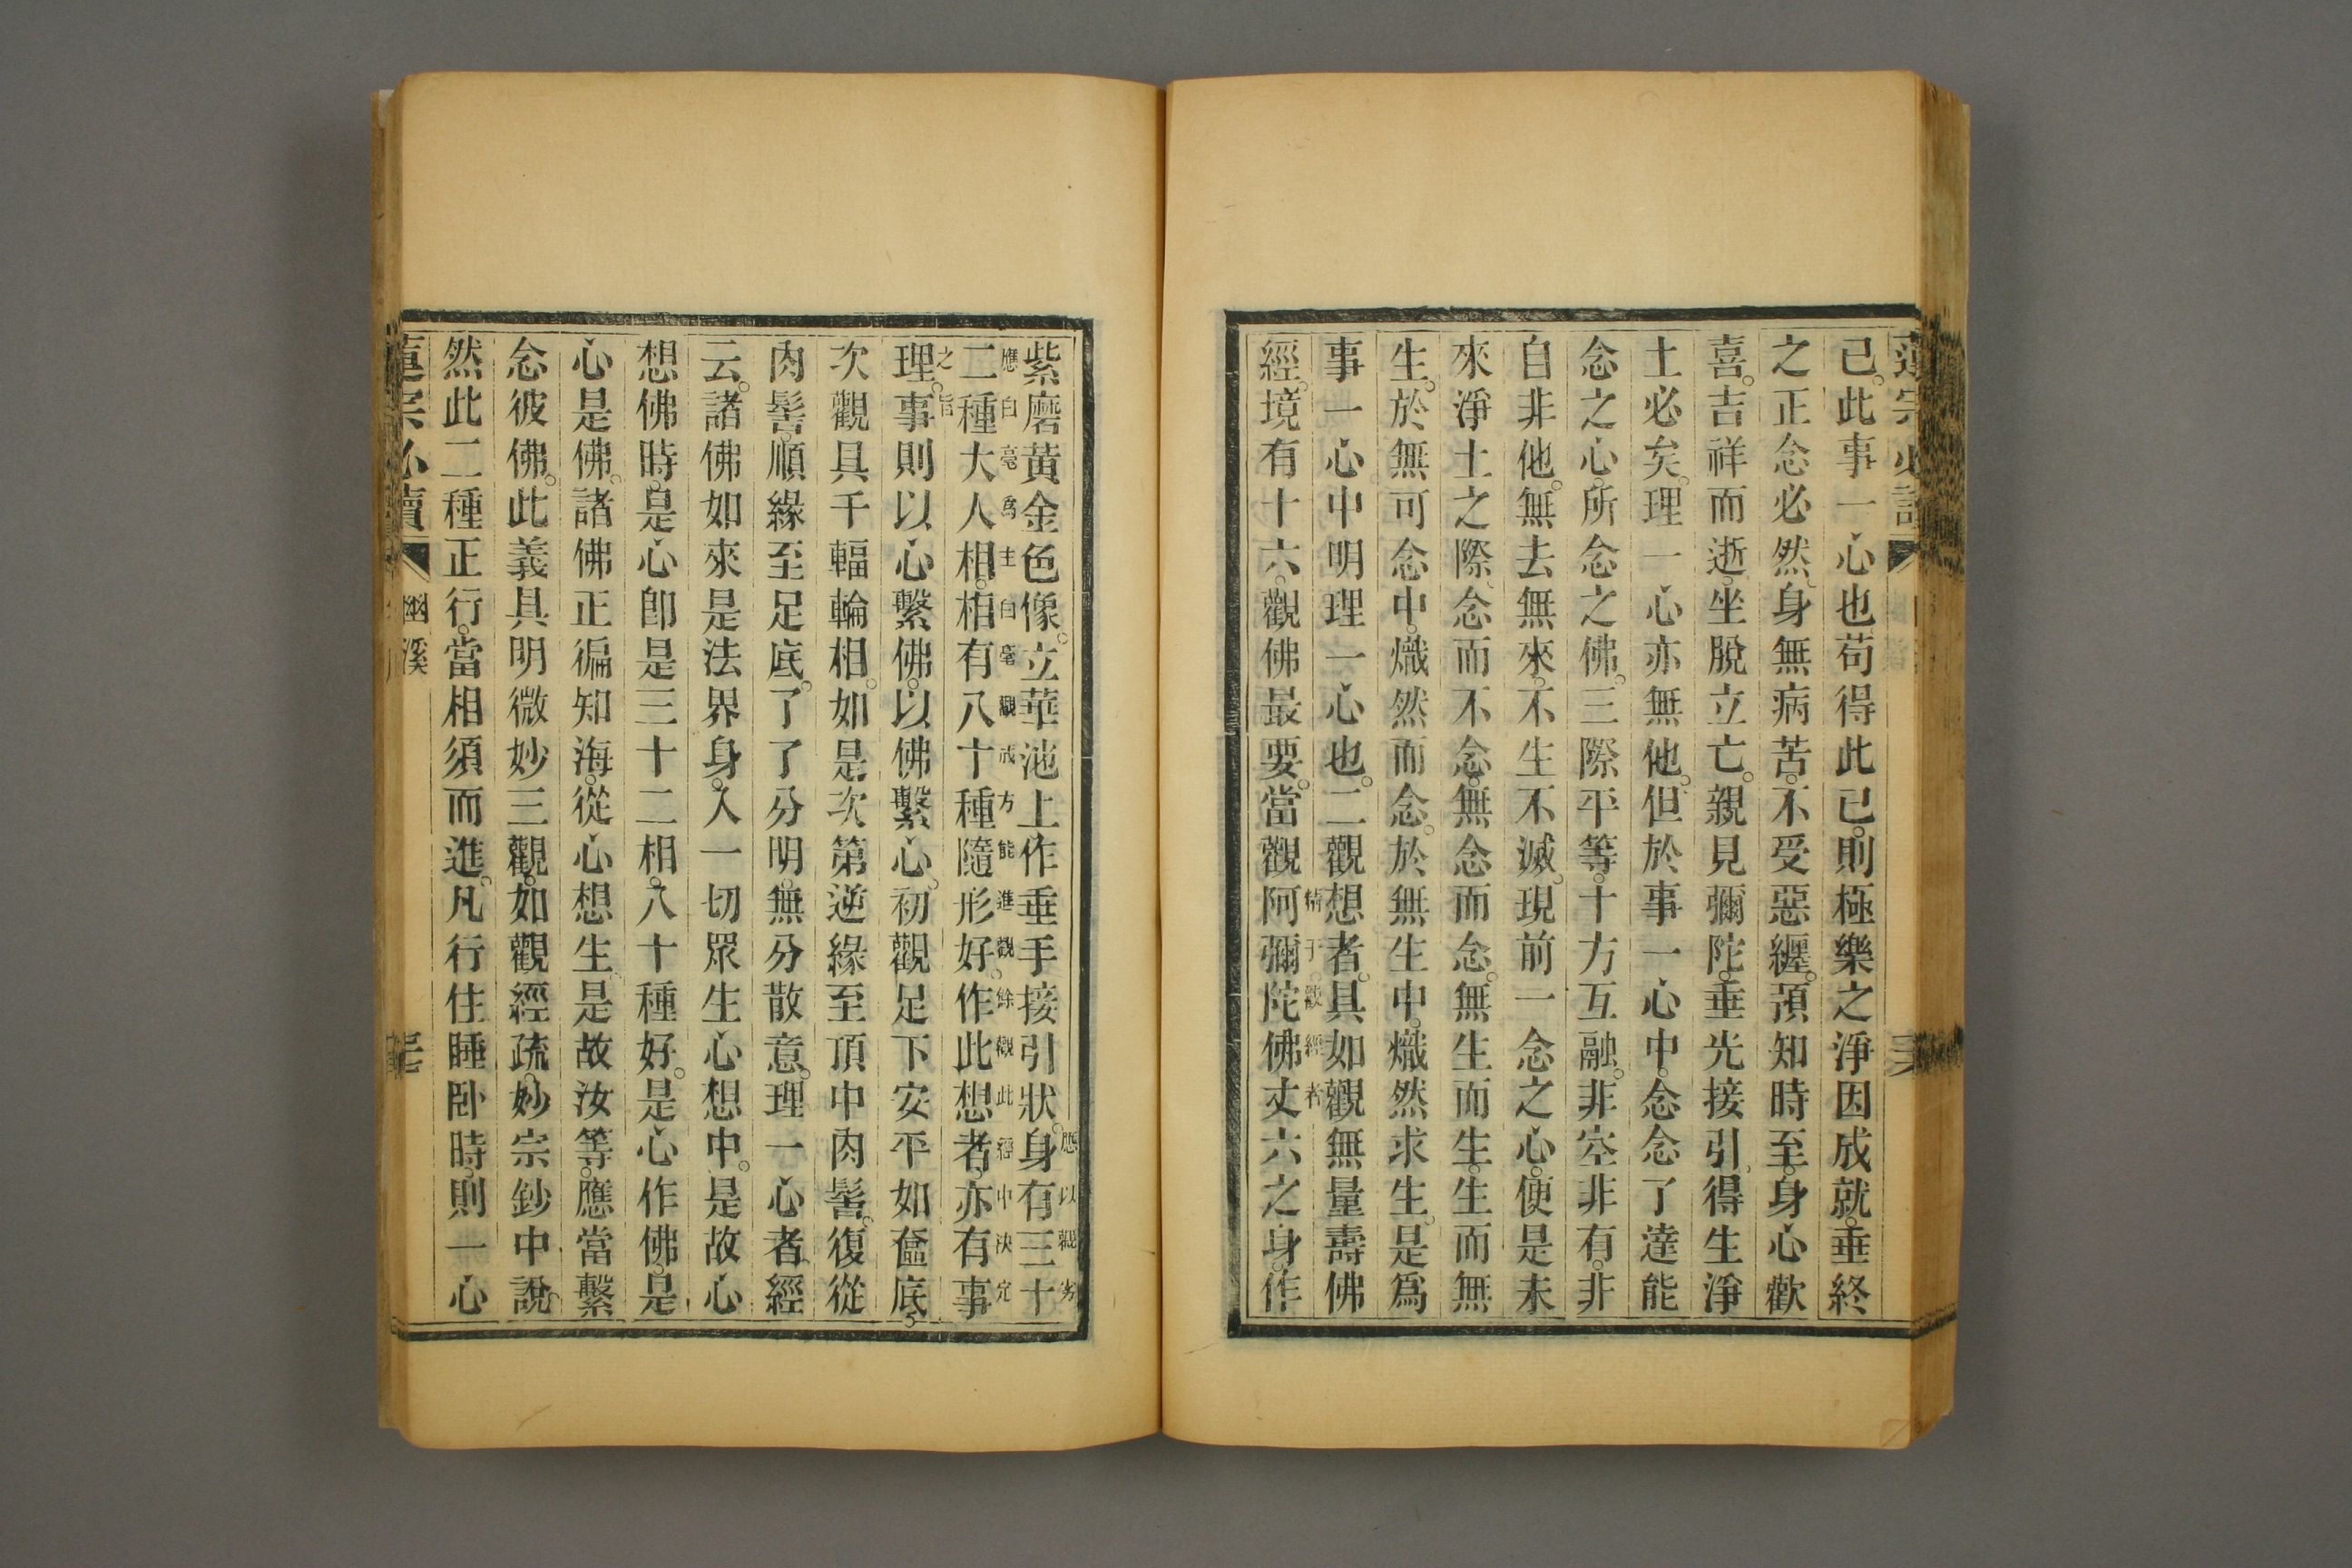 蓮宗必讀
已。此事一心也苟得此已。則極樂之淨因成就。垂終
之正念必然。身無病苦。不受惡纏。預知時至。身心歡
喜。吉祥而逝。坐脫立亡。親見彌陀。垂光接引。得生淨
土必矣。理一心亦無他。但於事一心中。念念了達能
念之心。所念之佛。三際平等。十方互融。非空非有。非
自非他。無去無來。不生不滅。現前一念之心。便是未
來淨土之際。念而不念。無念而念。無生而生。生而無
生。於無可念中。熾然而念。於無生中。熾然求生。是爲
事一心中明理一心也。二觀想者。具如觀無量壽佛
精于談經者
經。境有十六。觀佛最要。當觀阿彌陀佛丈六之身。作
應以觀劣
紫磨黃金色像。立華池上作垂手接引狀。身有三十
應白毫爲主白毫觀成方能進觀餘觀此經中決定
二種大人相。相有八十種隨形好。作此想者。亦有事
之旨
理。事則以心繫佛。以佛繫心。初觀足下安平如奩底。
次觀具千輻輪相。如是次第逆緣至頂中肉髻。復從
肉髻。順緣至足底。了了分明。無分散意。理一心者。經
云。諸佛如來是法界身。入一切眾生心想中。是故心
想佛時。是心即是三十二相。八十種好。是心作佛。是
心是佛。諸佛正徧知海。從心想生。是故汝等。應當繫
念彼佛。此義具明微妙三觀。如觀經疏。妙宗鈔中說。
然此二種正行。當相須而進。凡行住睡卧時。則一心
蓮宗必讀 幽溪